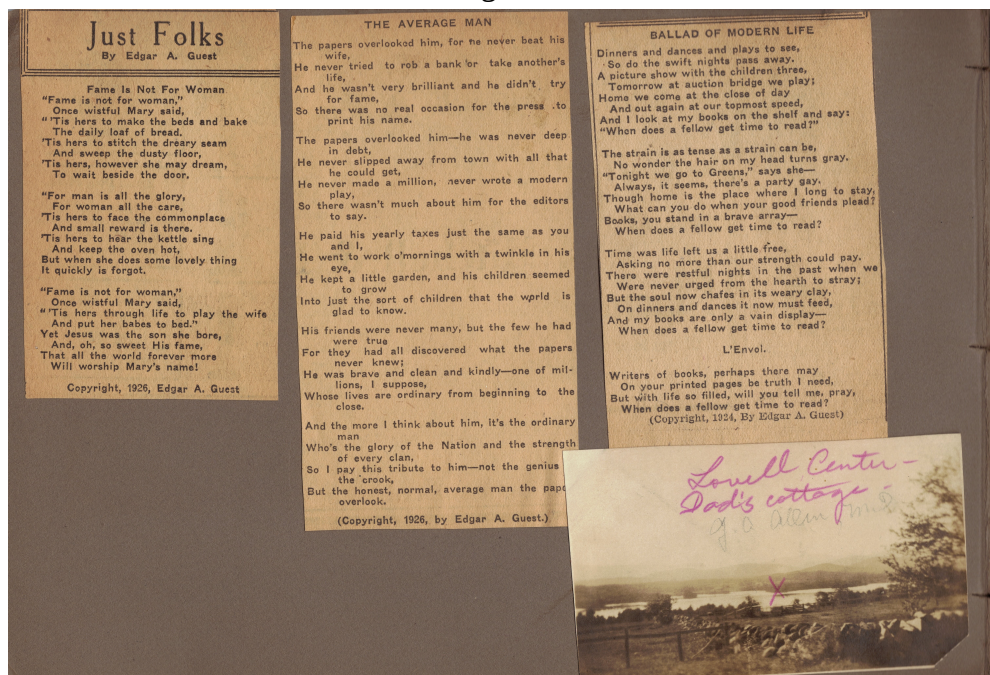 Just Folks
By Edgar A. Guest
Fame Is Not For Woman
"Fame is not for woman,"
Once wistful Mary said,
"'Tis hers to make the beds and bake
The daily loaf of bread.
'Tis hers to stitch the dreary seam
And sweep the dusty floor,
'Tis hers, however she may dream,
To wait beside the door.
"For man is all the glory,
For woman all the care,
'Tis hers to face the commonplace
And small reward is there.
'Tis hers to hear the kettle sing
And keep the oven hot,
But when she does some lovely thing
It quickly is forgot.
"Fame is not for woman,"
Once wistful Mary said,
"'Tis hers through life to play the wife
And put her babes to bed."
Yet Jesus was the son she bore,
And, oh, so sweet His fame,
That all the world forever more
Will worship Mary's name!
Copyright, 1926, Edgar A. Guest
THE AVERAGE MAN
The papers overlooked him, for he never beat his
wife,
He never tried to rob a bank or take another's
life,
And he wasn't very brilliant and he didn't try
for fame,
So there was no real occasion for the press to
print his name.
The papers overlooked him—he was never deep
in debt,
He never slipped away from town with all that
he could get,
He never made a million, never wrote a modern
play,
So there wasn't much about him for the editors
to say.
He paid his yearly taxes just the same as you
and I,
He went to work o'mornings with a twinkle in his
eye,
He kept a little garden, and his children seemed
to grow
Into just the sort of children that the world is
glad to know.
His friends were never many, but the few he had
were true
For they had all discovered what the papers
never knew;
He was brave and clean and kindly—one of mil-
lions, I suppose,
Whose lives are ordinary from beginning to the
close.
And the more I think about him, it's the ordinary
man
Who's the glory of the Nation and the strength
of every clan,
So I pay this tribute to him—not the genius
the crook,
But the honest, normal, average man the pape
overlook.
(Copyright, 1926, by Edgar A. Guest.)
BALLAD OF MODERN LIFE
Dinners and dances and plays to see,
So do the swift nights pass away.
A picture show with the children three,
Tomorrow at auction bridge we play;
Home we come at the close of day
And out again at our topmost speed,
And I look at my books on the shelf and say:
"When does a fellow get time to read?"
The strain is as tense as a strain can be,
No wonder the hair on my head turns gray.
"Tonight we go to Greens," says she—
Always, it seems, there's a party gay.
Though home is the place where I long to stay,
What can you do when your good friends plead?
Books, you stand in a brave array—
When does a fellow get time to read?
Time was life left us a little free,
Asking no more than our strength could pay.
There were restful nights in the past when we
Were never urged from the hearth to stray;
But the soul now chafes in its weary clay,
On dinners and dances it now must feed,
And my books are only a vain display—
When does a fellow get time to read?
L'Envoi.
Writers of books, perhaps there may
On your printed pages be truth I need,
But with life so filled, will you tell me, pray,
When does a fellow get time to read?
(Copyright, 1924, By Edgar A. Guest)
Lovell Center -
Dad's cottage -
X